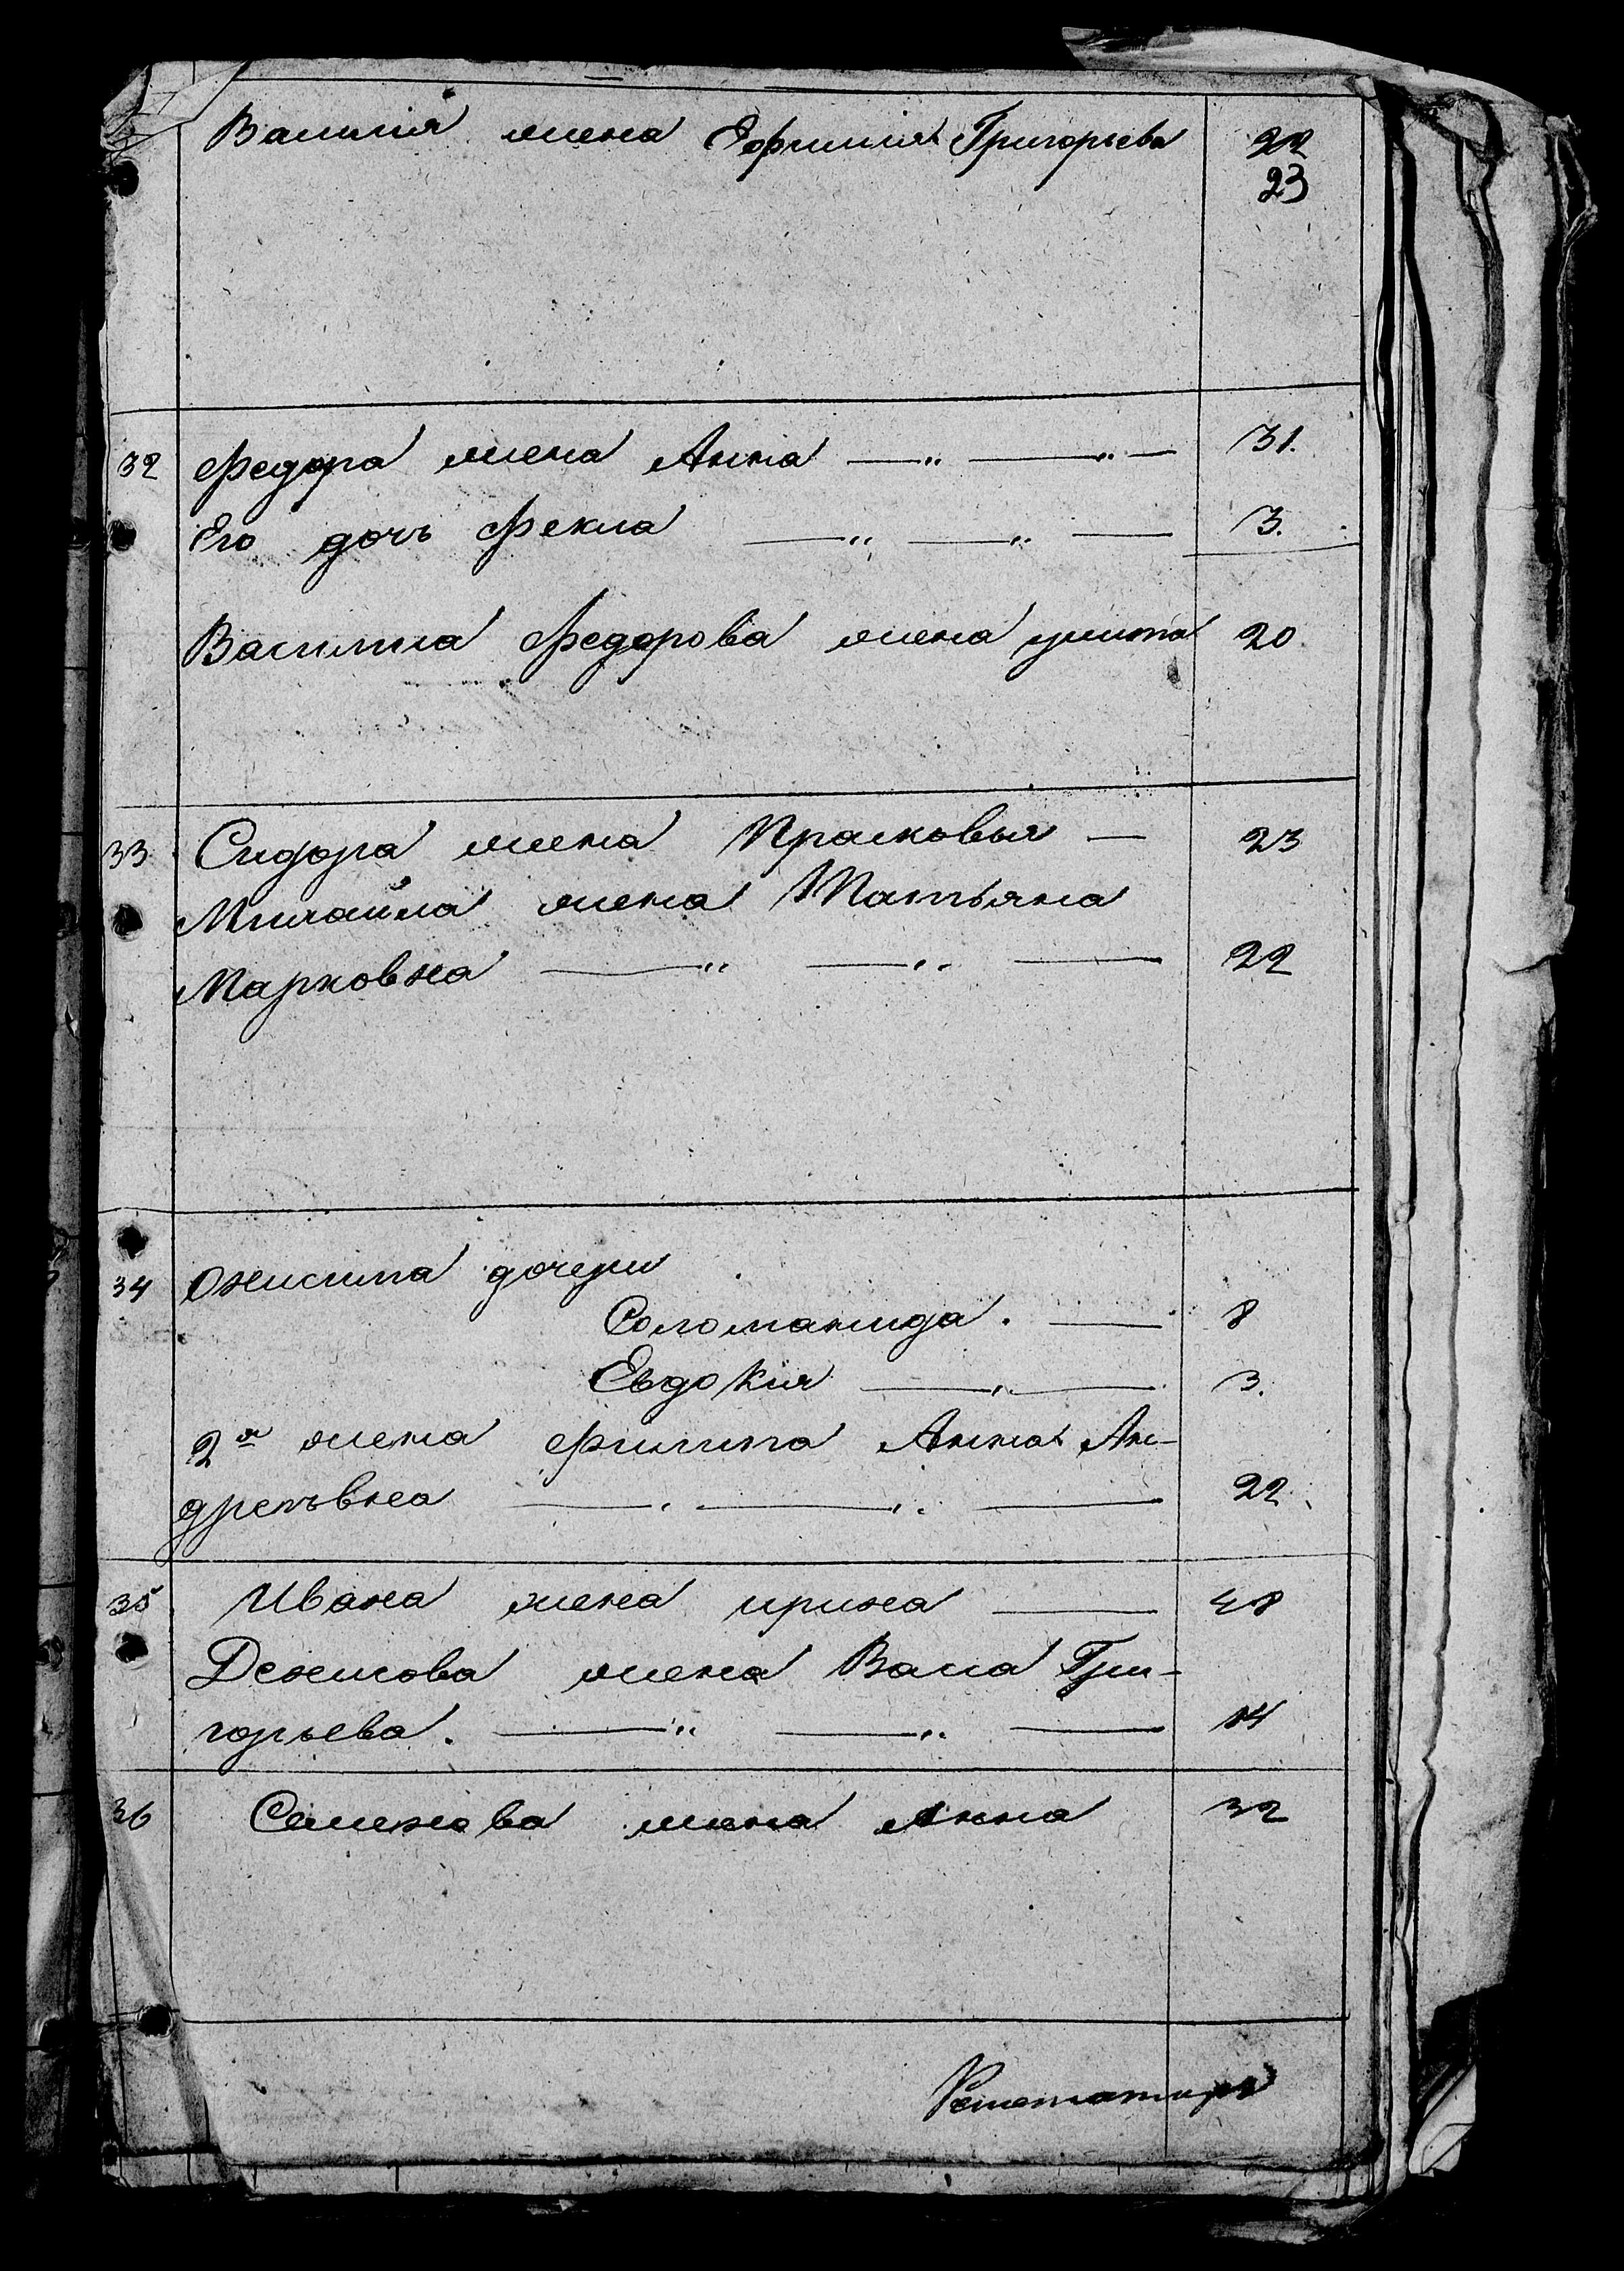 Василия жена Ефимия Григорьева 22
23
32 Федора жена Анна —„— „— 31.
Его дочь Фекла —„—„— 3.
Василиа Федорова жена улита 20
33 Сидора жена Прасковья — 23
Михайла жена Татьяна
Марковна —„—„— 22
34 Онисима дочери
Соломанида. — 8
Евдокия — 3.
2я жена Филипа Анна Ан-
дреевна — 22
35 Ивана жена ирина — 48
Денисова жена Васа Гри-
горьева. —„—„— 14
36 Семенова жена Анна 32